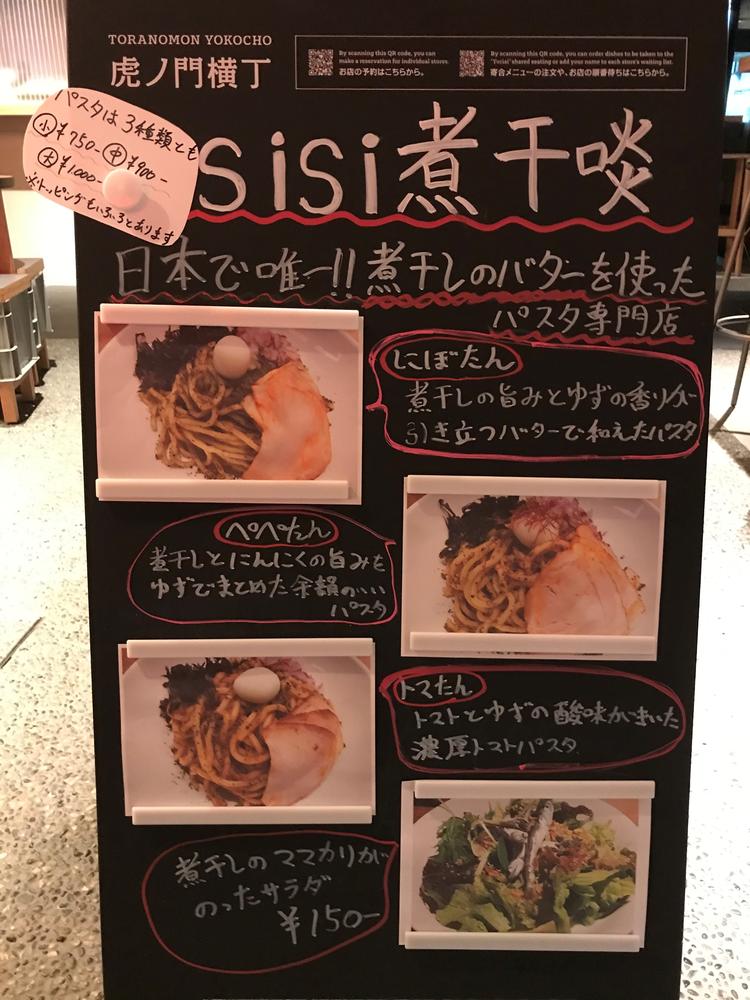 TORANOMON YOKOCHO
虎ノ門横丁
By scanning this QR code, you can
make a reservation for individual stores.
お店の予約はこちらから。
By scanning this QR code, you can order dishes to be taken to the
"Yoriai" shared seating or add your name to each store's waiting list.
寄合メニューの注文や、お店の順番待ちはこちらから。
パスタは3種類とも
小¥750- 中¥900-
大¥1000-
※トッピングもいろいろとあります
sisi煮干啖
日本で唯一!!煮干しのバターを使った
パスタ専門店
にぼたん
煮干しの旨みとゆずの香りが
引き立つバターで和えたパスタ
ペペたん
煮干しとにんにくの旨みを
ゆずでまとめた余韻のいい
パスタ
トマたん
トマトとゆずの酸味がきいた
濃厚トマトパスタ
煮干しのママカリが
のったサラダ
¥150-